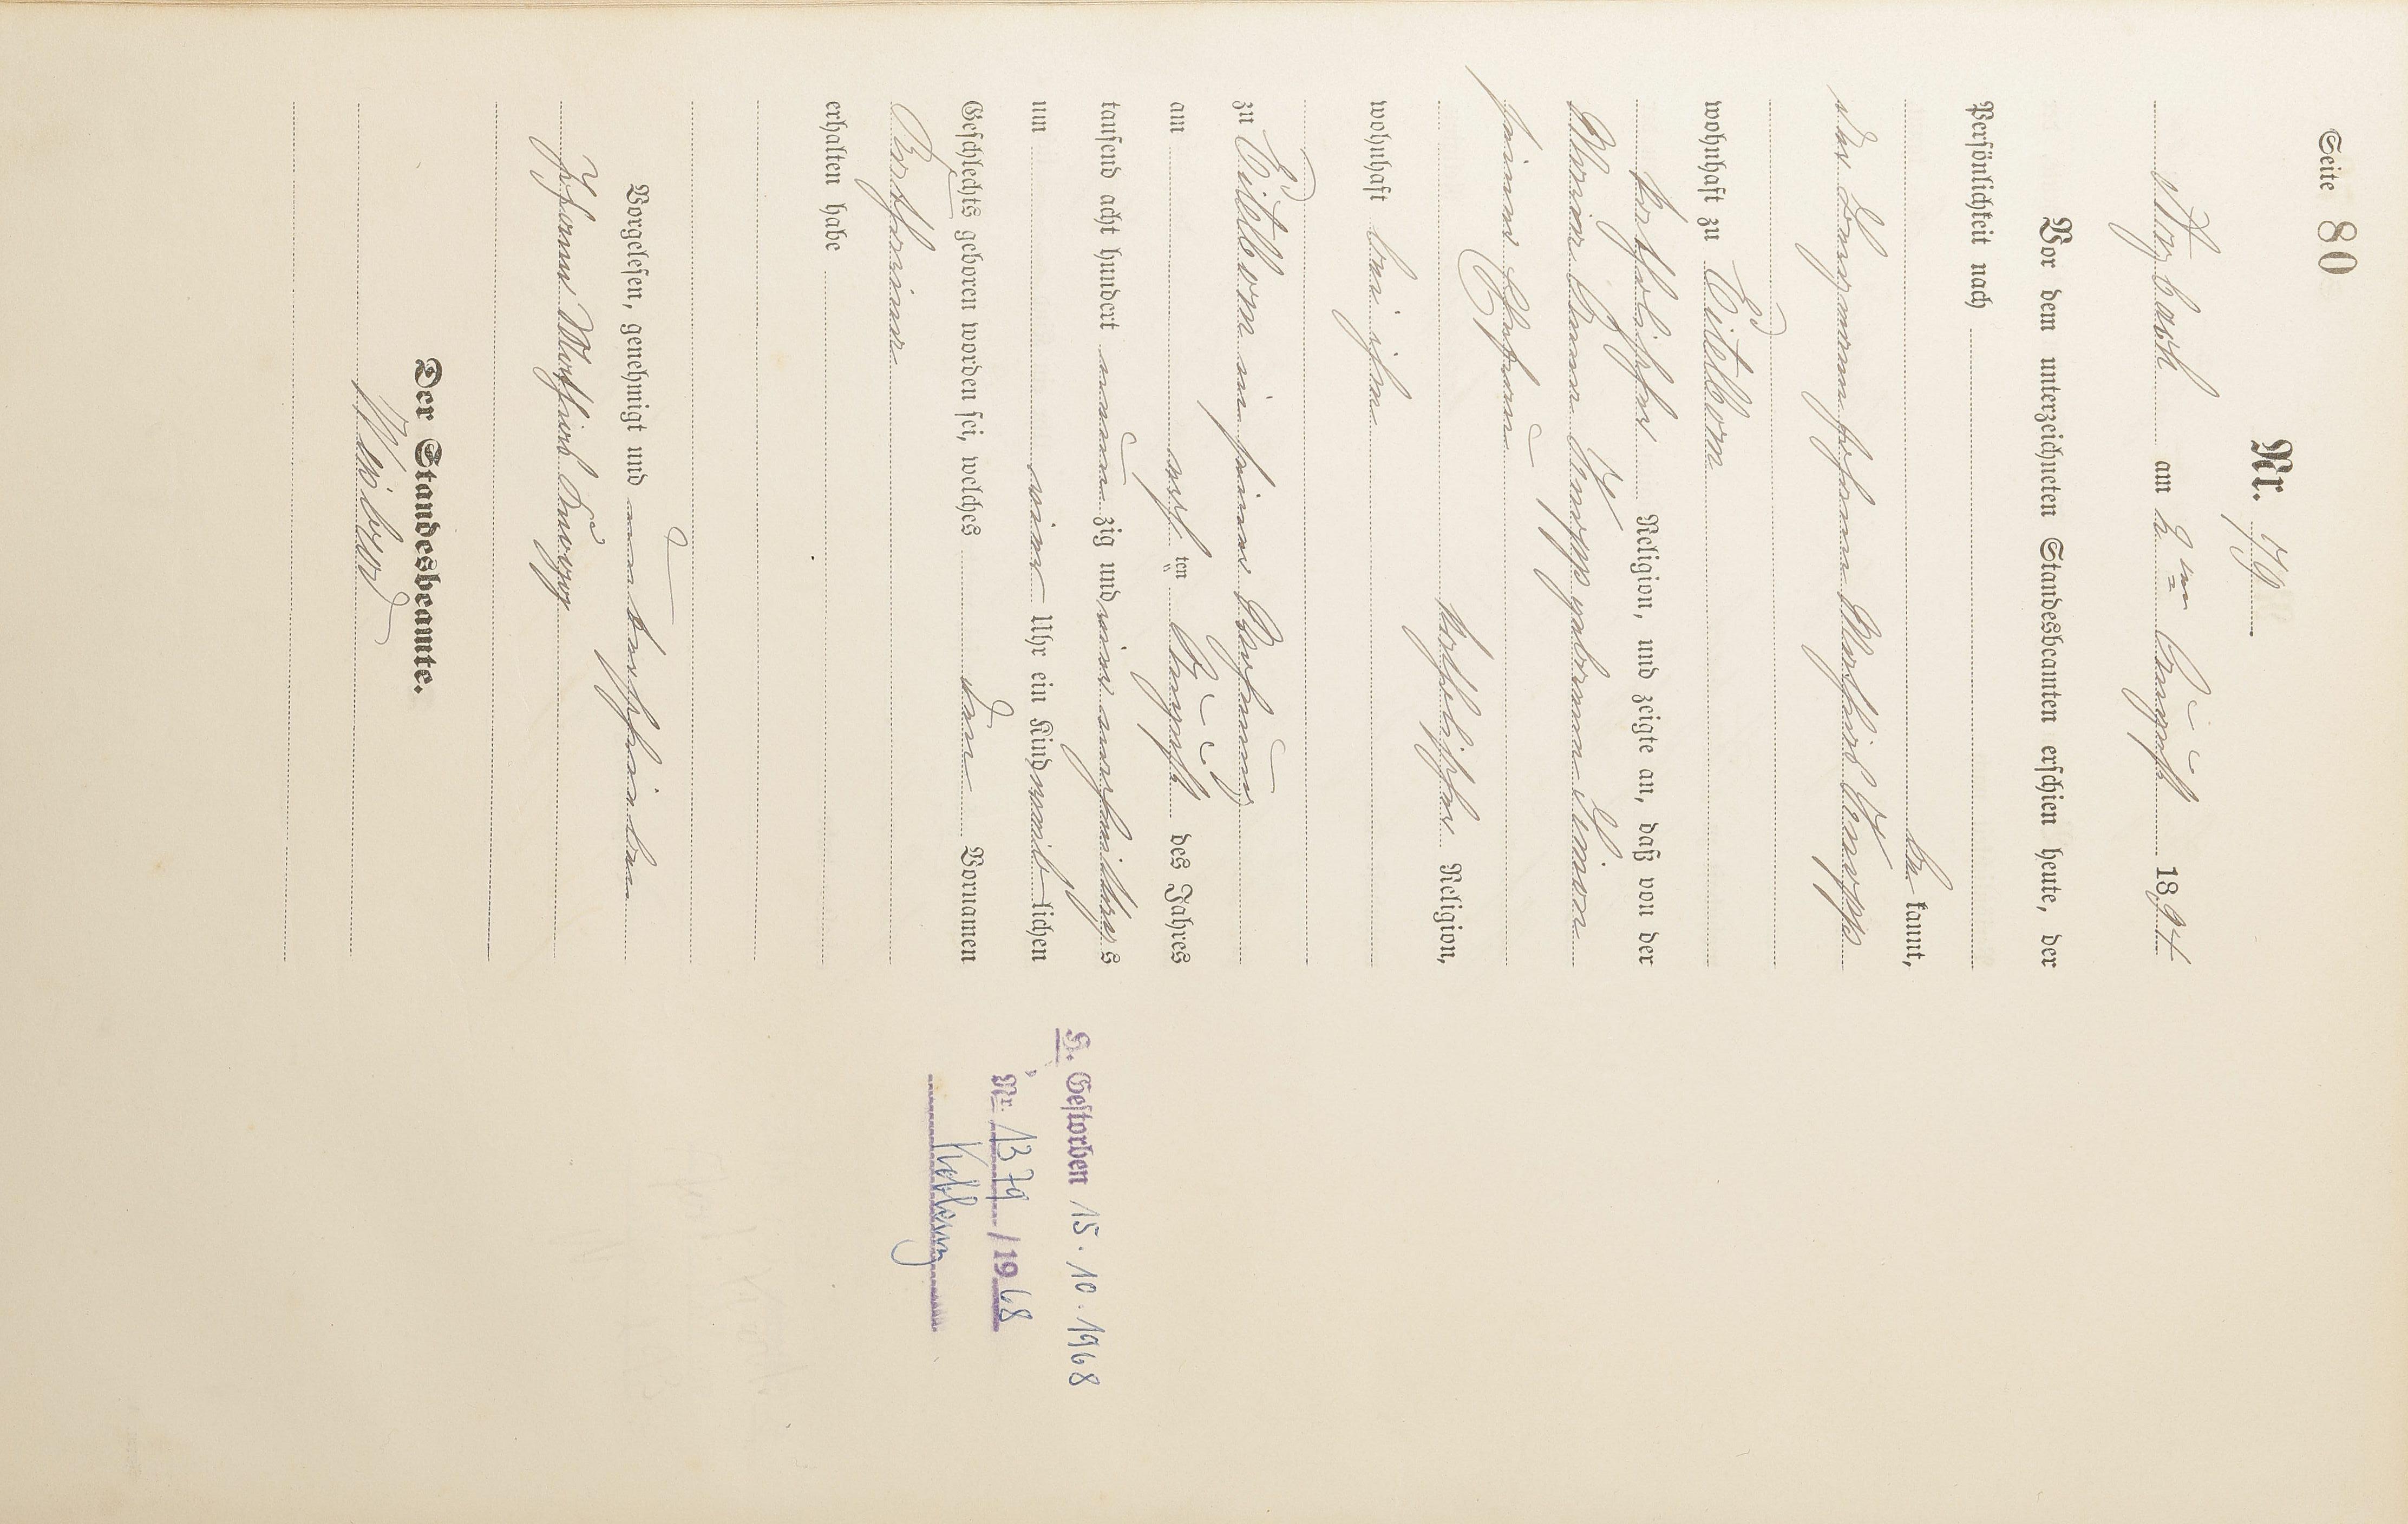 Seite 80
Nr. 79
am 2ten August 1894
Vor dem unterzeichneten Standesbeamten erschien heute, der
Persönlichkeit nach
be kannt,
der Bergmann Johann Mathias Knopp
wohnhaft zu Eitelborn
katholischer Religion, und zeigte an, daß von der
Maria Anna Knopp geborenen Simon
seiner Ehefrau
katholischer Religion,
wohnhaft bei ihm
zu Eitelborn in seiner Behausung
am ersten August des Jahres
tausend acht hundert neun zig und vier nachmittags
um vier Uhr ein Kind weib lichen
Geschlechts geboren worden sei, welches den Vornamen
Katharina
erhalten habe
Vorgelesen, genehmigt und unterschrieben
Johann Mathias Knopp
Der Standesbeamte.
H. Gestorben 15.10.1968
Nr. 1379 /1968
Koblenz